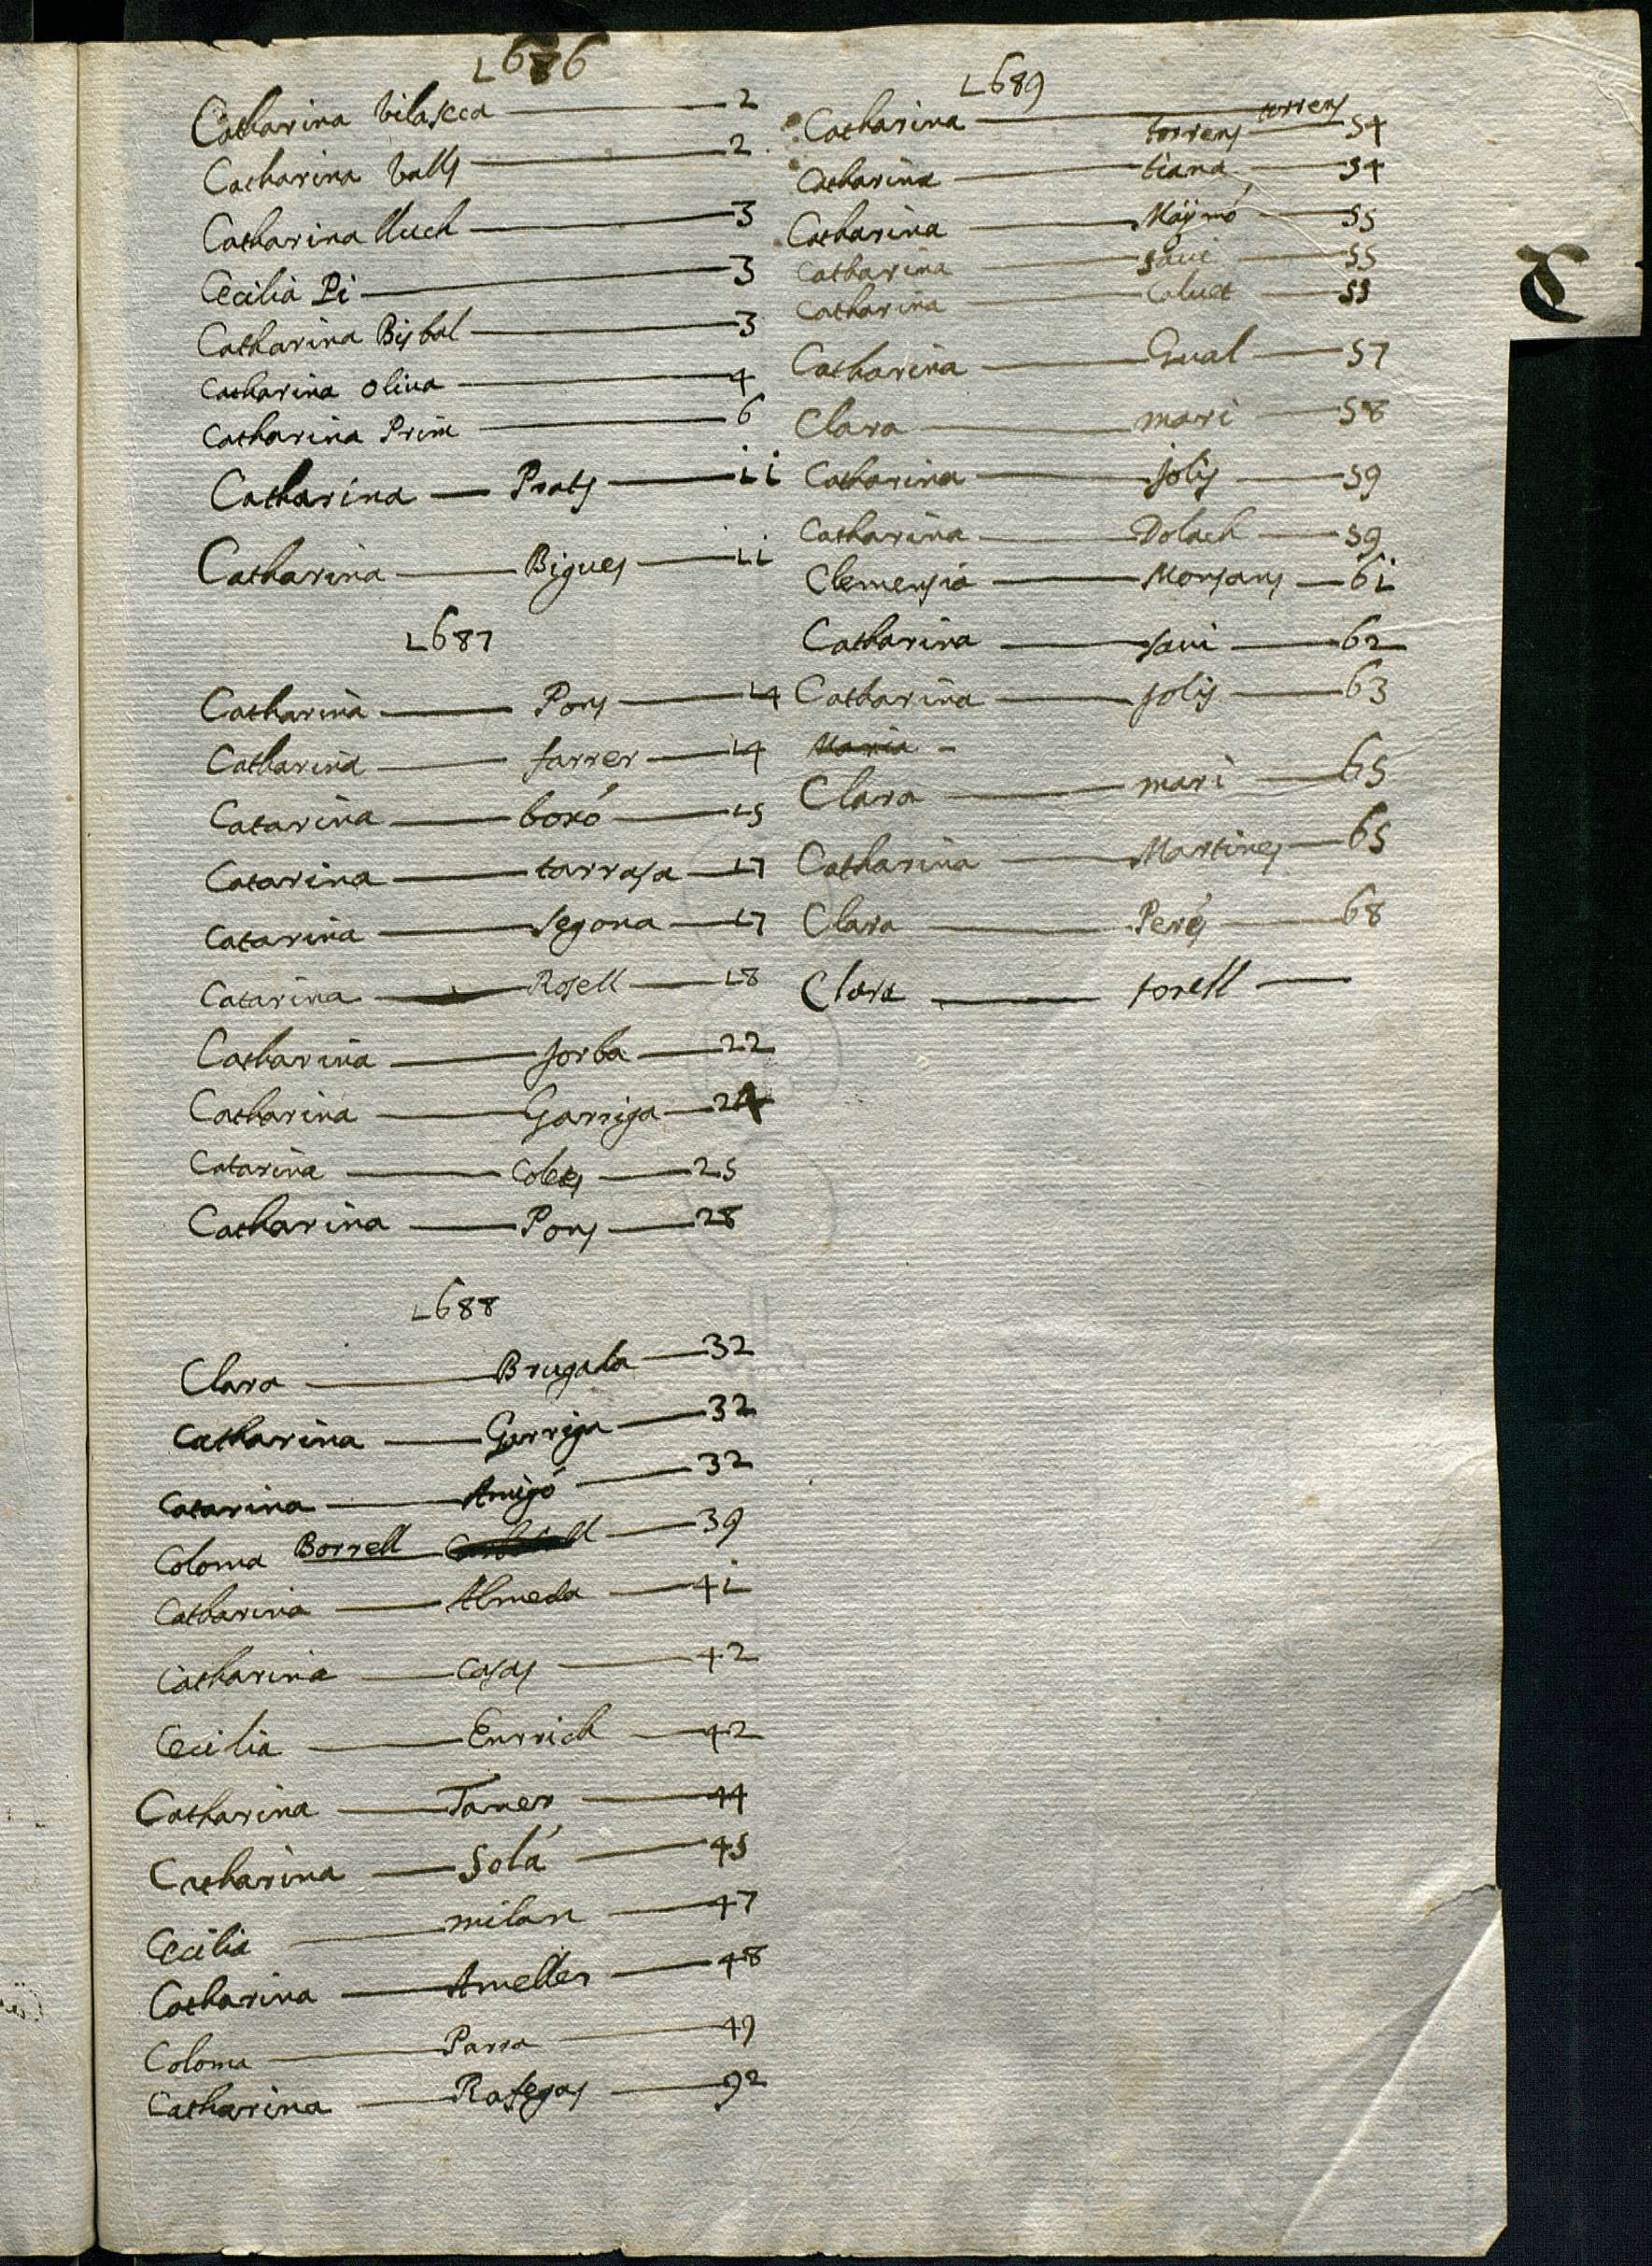 1686
Catharina vilaseca 2
Catharina valls 2
Catharina lluch 3
Cecilia Pi 3
Catharina Bisbal 3
Catharina oliua 4
Catharina Prim 6
Catharina Prats ii
Catharina Bigues ii
1687
Catharina Pons 14
Catharina farrer 14
Catarina boxó 15
Catarina tarrasa 17
Catarina segona 17
Catarina Rosell 18
Catharina Jorba 22
Catharina Garriga 24
Catarina Colets 25
Catharina Pons 28
1688
Clara Brugada 32
Catharina Garriga 32
Catarina Amigó 32
Coloma Borrell 39
Catharina Almeda 4i
Catharina Casas 42
Cecilia Enrrich 42
Catharina Janer 44
Catharina Solá 45
Cecilia milan 47
Catharina Ameller 48
Coloma Parra 49
Catharina Rafegas 92
1689
torrens
Catharina torrens 54
Catharina tiana 54
Catharina Maÿmó 55
Catharina saui 55
Catharina Caluet 55
Catharina Gual 57
Clara mari 58
Catharina Jolis 59
Catharina Dolach 59
Clemensia Monsans 6i
Catharina saui 62
Catharina Jolis 63
Maria
Clara mari 65
Catharina Martines 65
Clara Perés 68
Clara torell
C